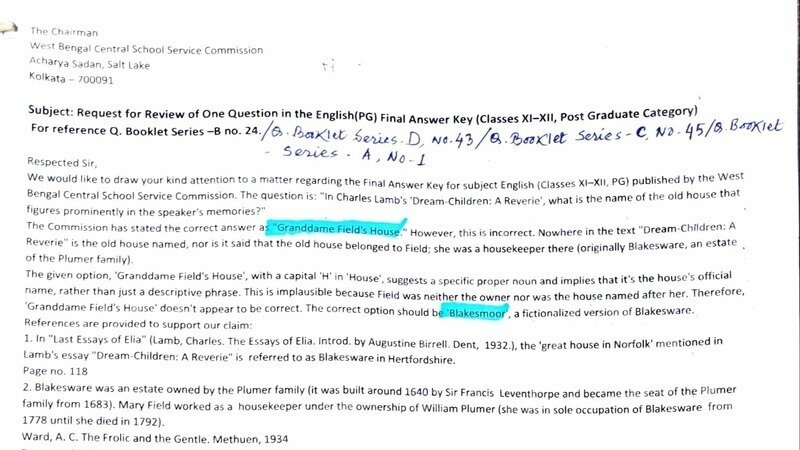 The Chairman
West Bengal Central School Service Commission
Acharya Sadan, Salt Lake
Kolkata – 700091
Subject: Request for Review of One Question in the English(PG) Final Answer Key (Classes XI–XII, Post Graduate Category)
For reference Q. Booklet Series –B no. 24./Q. Booklet Series-D, No. 43/Q. Booklet Series-C, No-45/Q. Booklet
- Series - A, No-1
Respected Sir,
We would like to draw your kind attention to a matter regarding the Final Answer Key for subject English (Classes XI–XII, PG) published by the West
Bengal Central School Service Commission. The question is: "In Charles Lamb's 'Dream-Children: A Reverie', what is the name of the old house that
figures prominently in the speaker's memories?"
The Commission has stated the correct answer as "Granddame Field's House." However, this is incorrect. Nowhere in the text "Dream-Children: A
Reverie" is the old house named, nor is it said that the old house belonged to Field; she was a housekeeper there (originally Blakesware, an estate
of the Plumer family).
The given option, 'Granddame Field's House', with a capital 'H' in 'House', suggests a specific proper noun and implies that it's the house's official
name, rather than just a descriptive phrase. This is implausible because Field was neither the owner nor was the house named after her. Therefore,
'Granddame Field's House' doesn't appear to be correct. The correct option should be 'Blakesmoor', a fictionalized version of Blakesware.
References are provided to support our claim:
1. In "Last Essays of Elia" (Lamb, Charles. The Essays of Elia. Introd. by Augustine Birrell. Dent, 1932.), the 'great house in Norfolk' mentioned in
Lamb's essay "Dream-Children: A Reverie" is referred to as Blakesware in Hertfordshire.
Page no. 118
2. Blakesware was an estate owned by the Plumer family (it was built around 1640 by Sir Francis Leventhorpe and became the seat of the Plumer
family from 1683). Mary Field worked as a housekeeper under the ownership of William Plumer (she was in sole occupation of Blakesware from
1778 until she died in 1792).
Ward, A. C. The Frolic and the Gentle. Methuen, 1934